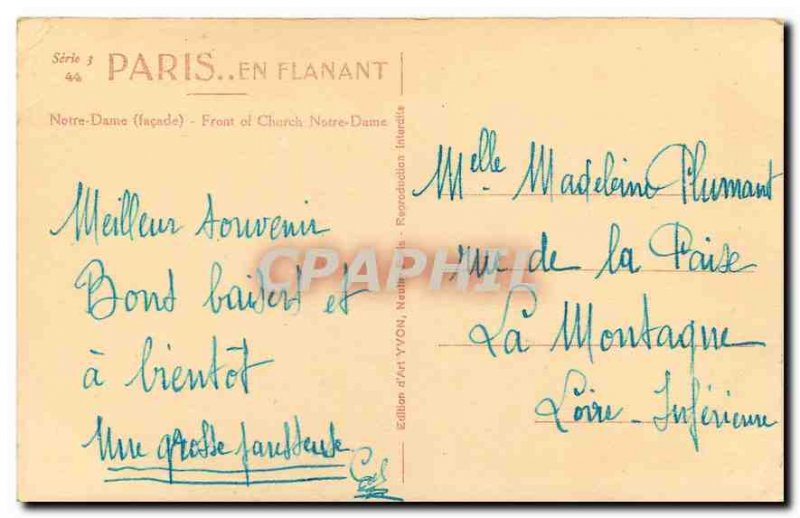 Série 3
44
PARIS..EN FLANANT
Notre-Dame (façade) - Front of Church Notre-Dame
Meilleur souvenir
Bons baisers et
à bientôt
Une grosse paresseuse
Edition d'Art YVON, Paris - Reproduction interdite
CPAPHIL.COM
Melle Madeleine Plumant
rue de la
La Montagne
Loire-Inférieure